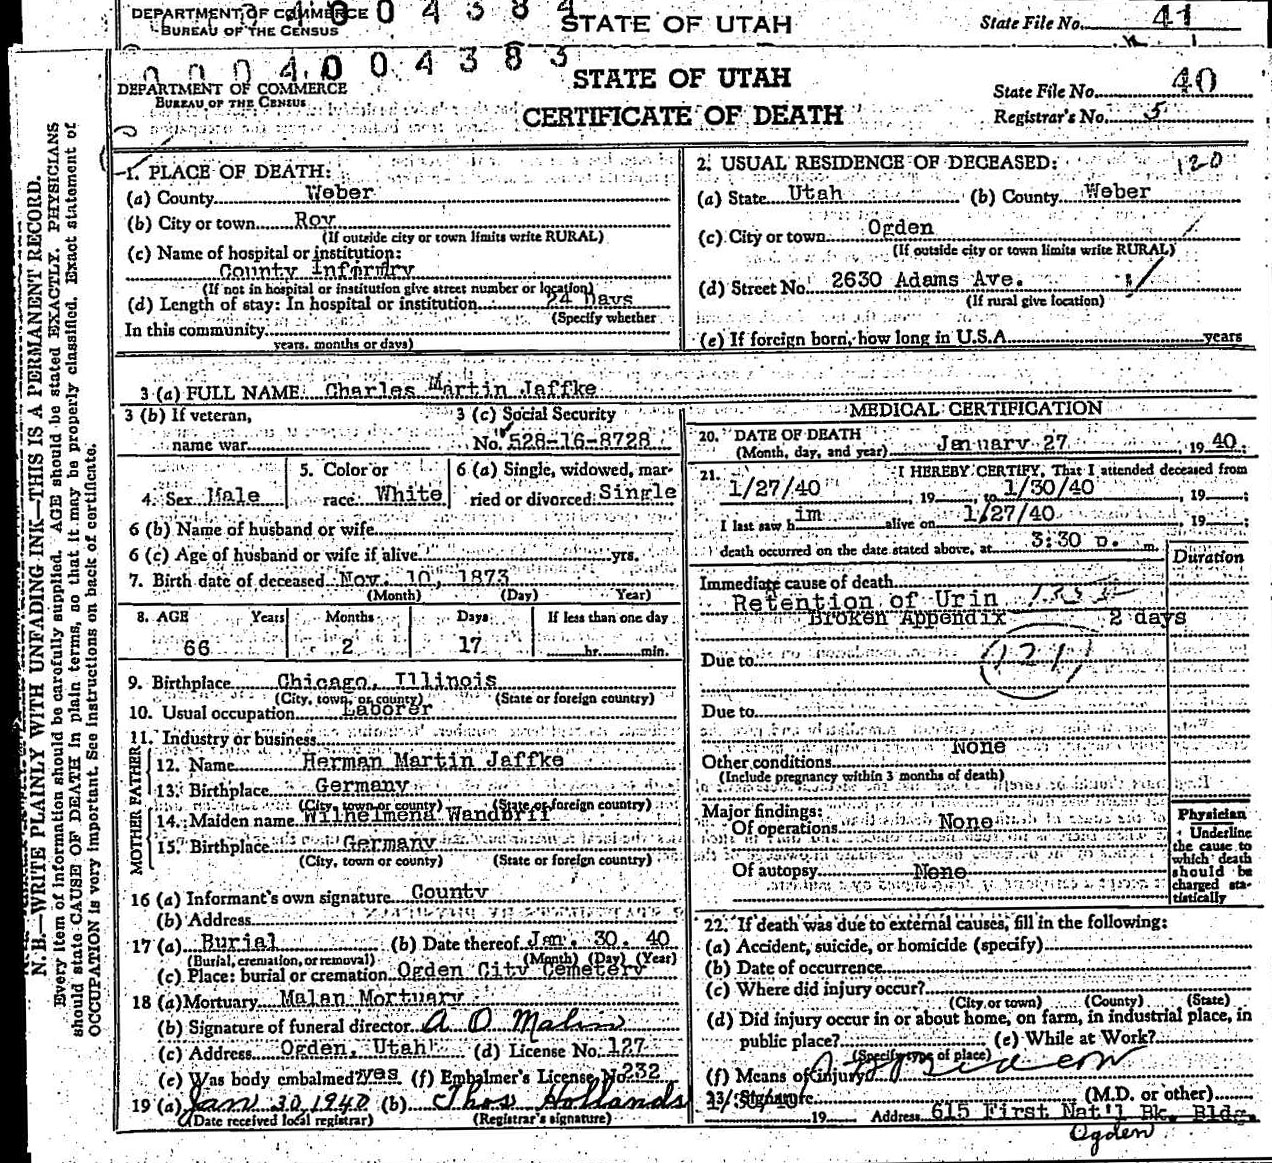 DEPARTMENT OF COMMERCE
BUREAU OF THE CENSUS
STATE OF UTAH
State File No. 41
0 0 0 4 0 0 4 3 8 3
DEPARTMENT OF COMMERCE
BUREAU OF THE CENSUS
STATE OF UTAH
CERTIFICATE OF DEATH
State File No. 40
Registrar's No. 5
N. B.—WRITE PLAINLY WITH UNFADING INK—THIS IS A PERMANENT RECORD.
Every item of information should be carefully supplied. AGE should be stated EXACTLY. PHYSICIANS
should state CAUSE OF DEATH in plain terms, so that it may be properly classified. Exact statement of
OCCUPATION is very important. See instructions on back of certificate.
1. PLACE OF DEATH:
(a) County Weber
(b) City or town Roy
(If outside city or town limits write RURAL)
(c) Name of hospital or institution:
County Infirmry
(If not in hospital or institution give street number or location)
(d) Length of stay: In hospital or institution 24 Days
(Specify whether
In this community
years, months or days)
2. USUAL RESIDENCE OF DECEASED: 120
(a) State Utah (b) County Weber
(c) City or town Ogden
(If outside city or town limits write RURAL)
(d) Street No. 2630 Adams Ave.
(If rural give location)
(e) If foreign born, how long in U.S.A. years
3 (a) FULL NAME Charles Martin Jaffke
3 (b) If veteran, name war
3 (c) Social Security
No. 528-16-8728
4. Sex Male
5. Color or race White
6 (a) Single, widowed, married or divorced: Single
6 (b) Name of husband or wife
6 (c) Age of husband or wife if alive yrs.
7. Birth date of deceased Nov. 10, 1873
(Month) (Day) Year)
8. AGE Years Months Days If less than one day
66 2 17 hr. min.
9. Birthplace Chicago, Illinois
(City, town, or county) (State or foreign country)
10. Usual occupation Laborer
11. Industry or business
FATHER
12. Name Herman Martin Jaffke
13. Birthplace Germany
(City, town or county) (State or foreign country)
MOTHER
14. Maiden name Wilhelmena Wandrff
15. Birthplace Germany
(City, town or county) (State or foreign country)
16 (a) Informant's own signature County
(b) Address
17 (a) Burial (b) Date thereof Jan. 30. 40
(Burial, cremation, or removal) (Month) (Day) (Year)
(c) Place: burial or cremation Ogden City Cemetery
18 (a) Mortuary Malan Mortuary
(b) Signature of funeral director A O Malin
(c) Address Ogden, Utah (d) License No. 127
(e) Was body embalmed? yes (f) Embalmer's License No. 232
19 (a) Jan 30, 1940 (b) Thos Hollands
(Date received local registrar) (Registrar's signature)
MEDICAL CERTIFICATION
20. DATE OF DEATH January 27 , 19 40.
(Month, day, and year)
21. I HEREBY CERTIFY, That I attended deceased from
1/27/40 , 19 , to 1/30/40 , 19 ;
I last saw him alive on 1/27/40 , 19 ;
death occurred on the date stated above, at 3:30 p. m.
Duration
Immediate cause of death
Retention of Urin
Broken Appendix 2 days
Due to 121
Due to
Other conditions None
(Include pregnancy within 3 months of death)
Major findings:
Of operations None
Of autopsy None
Physician
Underline the cause to which death should be charged statistically
22. If death was due to external causes, fill in the following:
(a) Accident, suicide, or homicide (specify)
(b) Date of occurrence
(c) Where did injury occur?
(City or town) (County) (State)
(d) Did injury occur in or about home, on farm, in industrial place, in
public place? (e) While at Work?
(Specify type of place)
(f) Means of injury
23. Signature (M.D. or other)
1/30/40 19 Address 615 First Nat'l Bk. Bldg.
Ogden